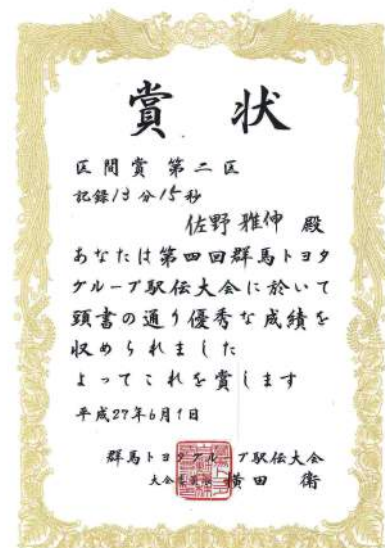 賞状
区間賞 第二区
記録13分15秒
佐野雅伸 殿
あなたは第四回群馬トヨタ
グループ駅伝大会に於いて
頭書の通り優秀な成績を
収められました
よってこれを賞します
平成27年6月1日
群馬トヨタグループ駅伝大会
大会 横田 衛